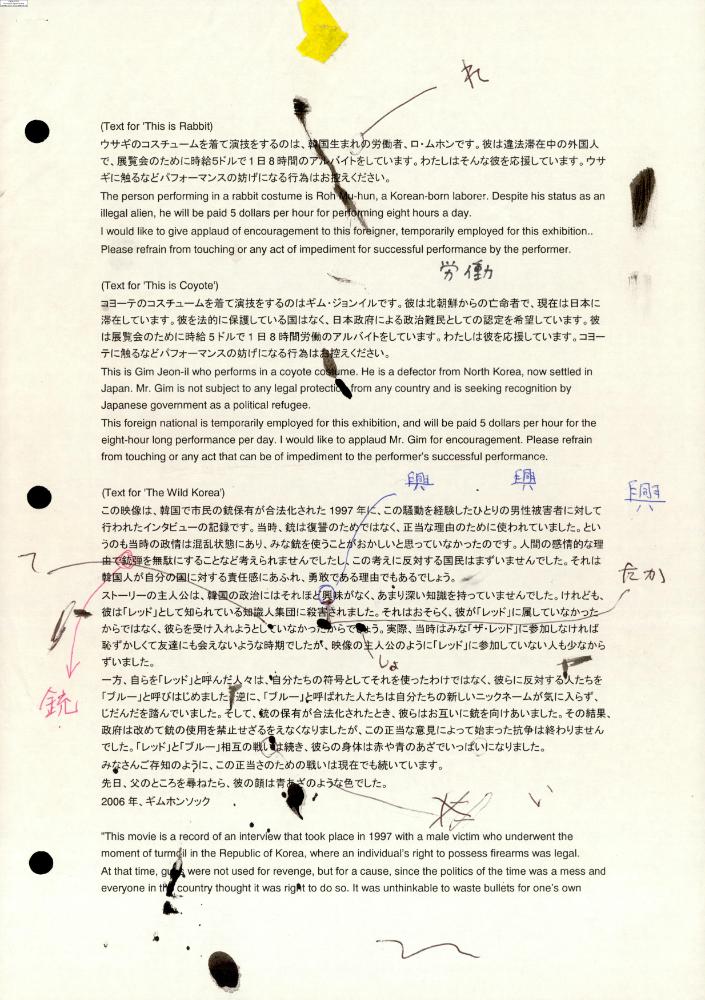 れ
(Text for 'This is Rabbit)
ウサギのコスチュームを着て演技をするのは、韓国生まれの労働者、ロ・ムホンです。彼は違法滞在中の外国人
で、展覧会のために時給5ドルで１日８時間のアルバイトをしています。わたしはそんな彼を応援しています。ウサ
ギに触るなどパフォーマンスの妨げになる行為はお控えください。
The person performing in a rabbit costume is Roh Mu-hun, a Korean-born laborer. Despite his status as an
illegal alien, he will be paid 5 dollars per hour for performing eight hours a day.
I would like to give applaud of encouragement to this foreigner, temporarily employed for this exhibition..
Please refrain from touching or any act of impediment for successful performance by the performer.
労働
(Text for 'This is Coyote')
コヨーテのコスチュームを着て演技をするのはギム・ジョンイルです。彼は北朝鮮からの亡命者で、現在は日本に
滞在しています。彼を法的に保護している国はなく、日本政府による政治難民としての認定を希望しています。彼
は展覧会のために時給５ドルで１日８時間労働のアルバイトをしています。わたしは彼を応援しています。コヨー
テに触るなどパフォーマンスの妨げになる行為はお控えください。
This is Gim Jeon-il who performs in a coyote costume. He is a defector from North Korea, now settled in
Japan. Mr. Gim is not subject to any legal protection from any country and is seeking recognition by
Japanese government as a political refugee.
This foreign national is temporarily employed for this exhibition, and will be paid 5 dollars per hour for the
eight-hour long performance per day. I would like to applaud Mr. Gim for encouragement. Please refrain
from touching or any act that can be of impediment to the performer's successful performance.
興 興 興
(Text for 'The Wild Korea')
この映像は、韓国で市民の銃保有が合法化された 1997 年に、この騒動を経験したひとりの男性被害者に対して
行われたインタビューの記録です。当時、銃は復讐のためではなく、正当な理由のために使われていました。とい
うのも当時の政情は混乱状態にあり、みな銃を使うことがおかしいと思っていなかったのです。人間の感情的な理
由で銃弾を無駄にすることなど考えられませんでしたし、この考えに反対する国民はまずいませんでした。それは
て
韓国人が自分の国に対する責任感にあふれ、勇敢である理由でもあるでしょう。
たか
ストーリーの主人公は、韓国の政治にはそれほど興味がなく、あまり深い知識を持っていませんでした。けれども、
彼は「レッド」として知られている知識人集団に殺害されました。それはおそらく、彼が「レッド」に属していなかった
からではなく、彼らを受け入れようとしていなかったからでしょう。実際、当時はみな「ザ・レッド」に参加しなければ
恥ずかしくて友達にも会えないような時期でしたが、映像の主人公のように「レッド」に参加していない人も少なから
しょ
ずいました。
一方、自らを「レッド」と呼んだ人々は、自分たちの符号としてそれを使ったわけではなく、彼らに反対する人たちを
「ブルー」と呼びはじめました。逆に、「ブルー」と呼ばれた人たちは自分たちの新しいニックネームが気に入らず、
銃
じだんだを踏んでいました。そして、銃の保有が合法化されたとき、彼らはお互いに銃を向けあいました。その結果、
政府は改めて銃の使用を禁止せざるをえなくなりましたが、この正当な意見によって始まった抗争は終わりません
でした。「レッド」と「ブルー」相互の戦いは続き、彼らの身体は赤や青のあざでいっぱいになりました。
みなさんご存知のように、この正当さのための戦いは現在でも続いています。
先日、父のところを尋ねたら、彼の顔は青あざのような色でした。
2006 年、ギムホンソック
い
"This movie is a record of an interview that took place in 1997 with a male victim who underwent the
moment of turmoil in the Republic of Korea, where an individual's right to possess firearms was legal.
At that time, guns were not used for revenge, but for a cause, since the politics of the time was a mess and
everyone in the country thought it was right to do so. It was unthinkable to waste bullets for one's own